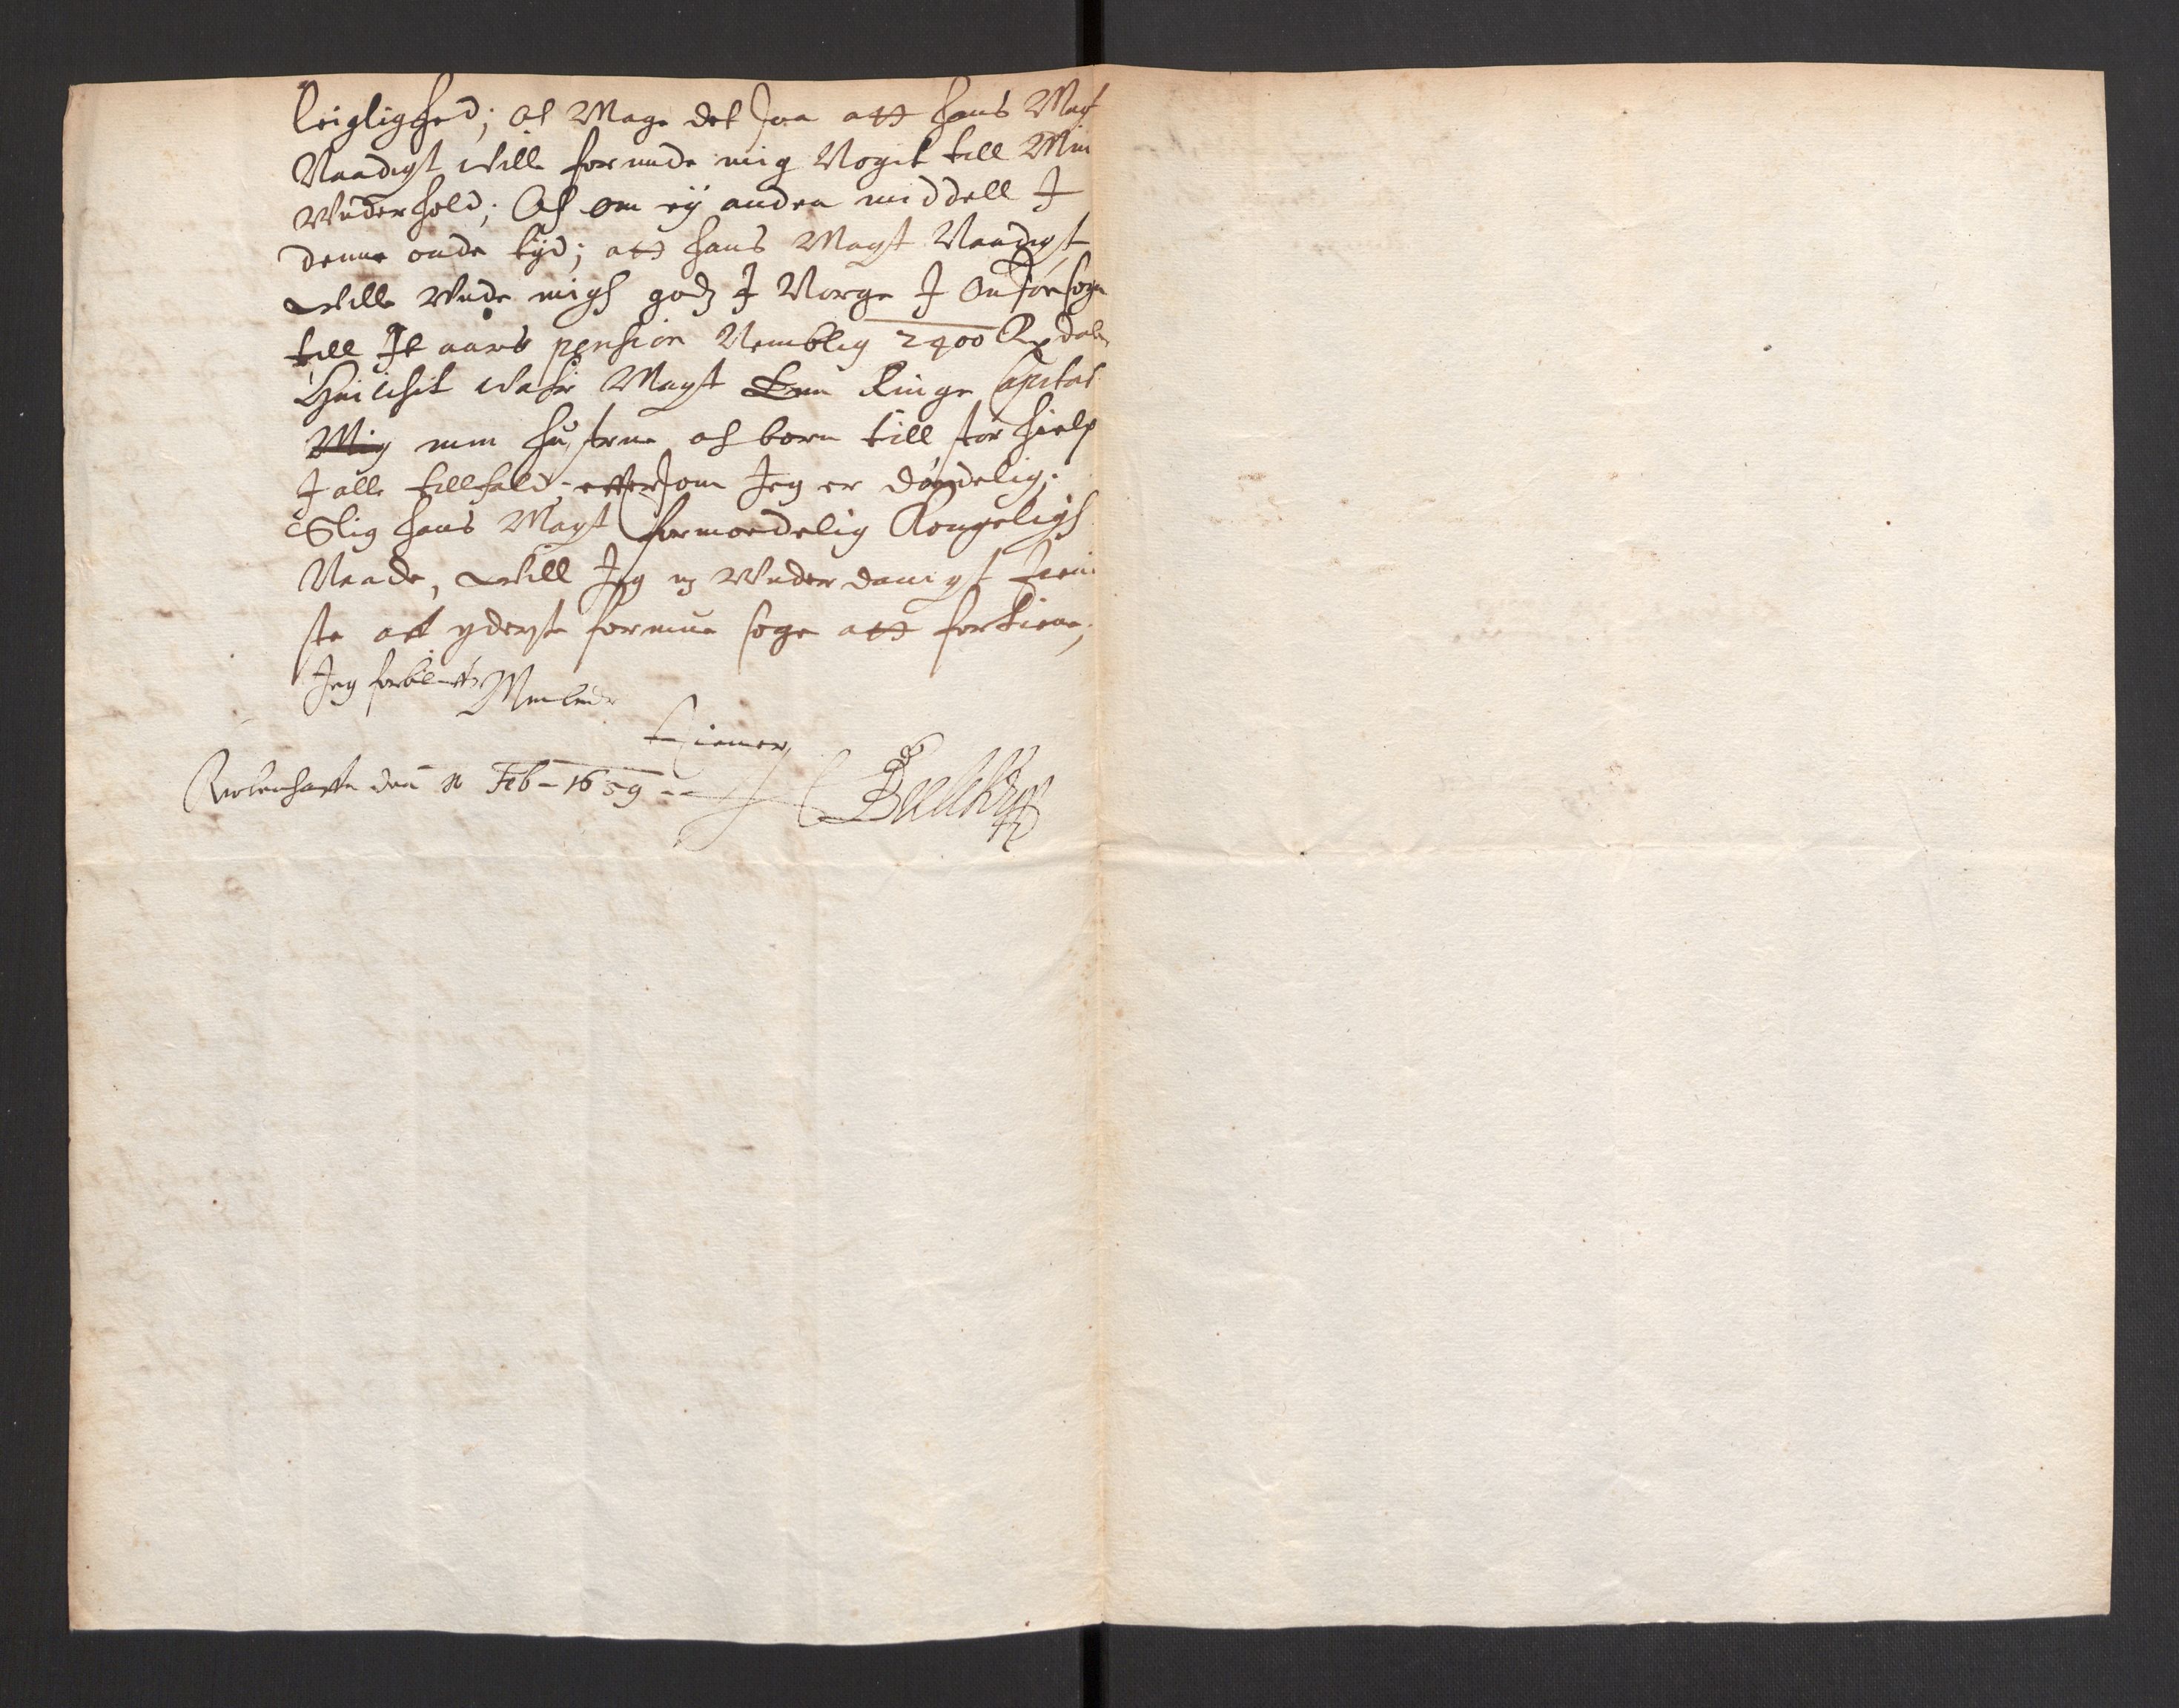 leiglighed; och Mage det saa att hans Mayt
Naadigst wille forunde mig Nogit till Min
Wnderhold; Och om ey anden middell I
denne onde tyd; att hans Mayst Naadigst
wille Wnde migh godz I Norge I Ansøe
till It aars pension Nemblig 2400 Rxdaler
Huilchit waere Mayst Een Ringe Capital
Mig min hustrue och børn till stor hielp
I alle tillfald; effter som Jeg er dødelig;
Slig hans Mayst formoedelig Kongeligh
Naade, will Jeg wnderdanigst tieni
ste aff yderste formue søge att fortiene,
Jeg forblifver
Tiener
Kiøbenhaffn den Feb - 1659 -